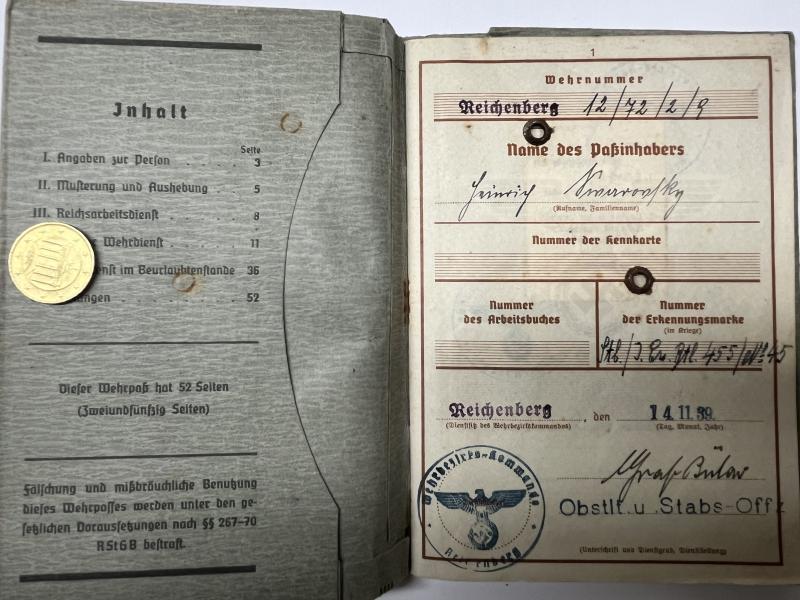 Inhalt
Seite
I. Angaben zur Person . . . . 3
II. Musterung und Aushebung . . 5
III. Reichsarbeitsdienst . . . . . 8
Wehrdienst . . . . . 11
im Beurlaubtenstande 36
52
Dieser Wehrpaß hat 52 Seiten
(Zweiundfünfzig Seiten)
Fälschung und mißbräuchliche Benutzung
dieses Wehrpasses werden unter den ge-
setzlichen Voraussetzungen nach §§ 267-70
RStGB bestraft.
1
Wehrnummer
Reichenberg 12/72/2/9
Name des Paßinhabers
Heinrich Swarovsky
(Rufname, Familienname)
Nummer der Kennkarte
Nummer
des Arbeitsbuches
Nummer
der Erkennungsmarke
(im Kriege)
Stb./J. Er. Btl. 455/No 45
Reichenberg, den 14.11.39.
(Dienstsitz des Wehrbezirkskommandos) (Tag, Monat, Jahr)
Wehrbezirks-Kommando
Reichenberg
Graf Bülow
Obstlt. u. Stabs-Offz
(Unterschrift und Dienstgrad, Dienststellung)